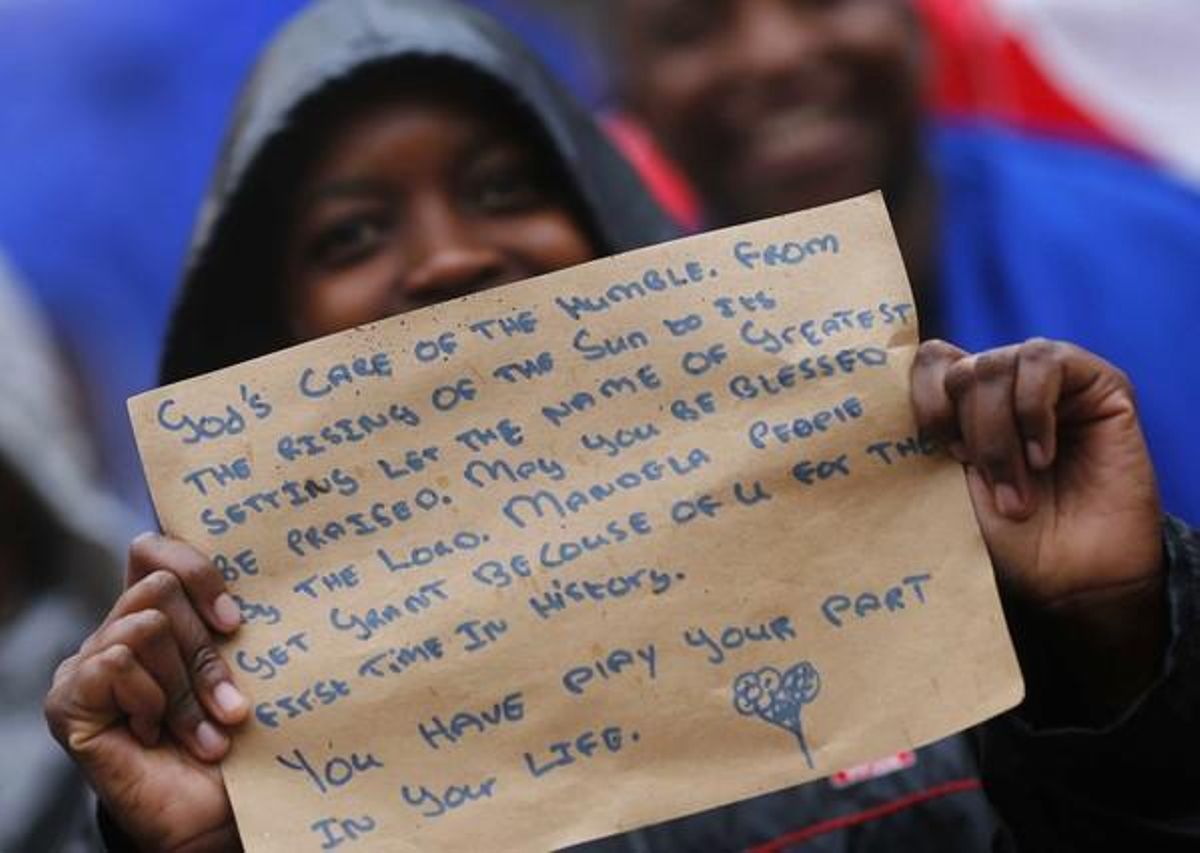 God's CARE OF THE HUMBLE. FROM
THE RISING OF THE SUN to ITS
SETTING LET THE NAME OF GREATEST
BE PRAISED. MAY YOU BE BLESSED
By THE LORD. MANDELA PEOPlE
GET GRANT BECOUSE OF U FOR THE
FIRST TIME IN HISTORY.
YOU HAVE PlAY YOUR PART
IN YOUR LIFE.